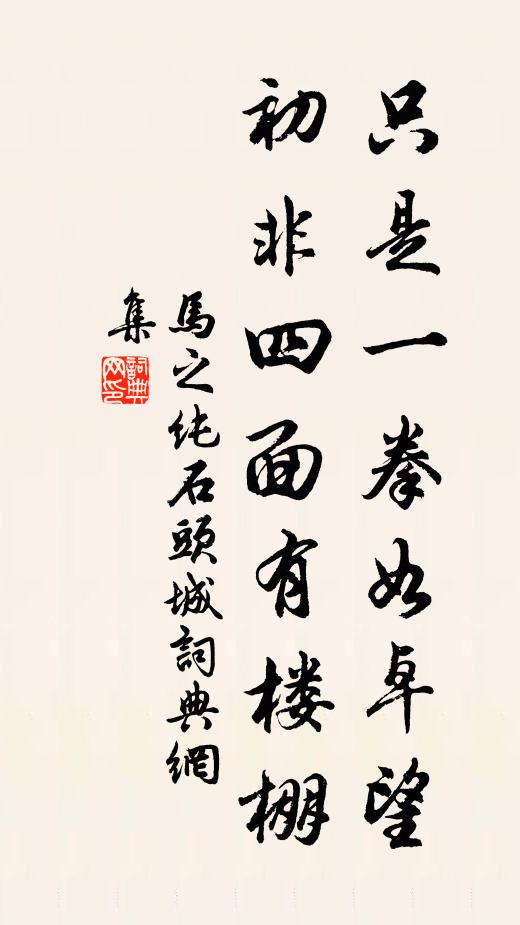 只是一拳如卓望
初非四面有楼棚
馬之纯石頭城詞典網
集
詞典网印